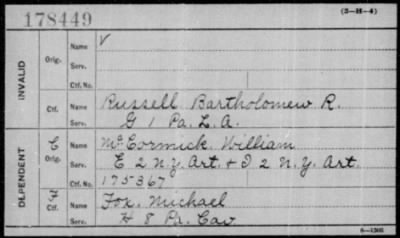 178449
(3-H-4)
INVALID
Orig.
Name V
Serv.
Ctf. No.
Ctf.
Name Russell Bartholomew R.
Serv. G 1 Pa. L. A.
DEPENDENT
C
Orig.
Name McCormick, William
Serv. E 2 N.Y. Art. + I 2 N.Y. Art.
Ctf. No. 175367
Ctf.
Name Fox, Michael
Serv. H 8 Pa. Cav